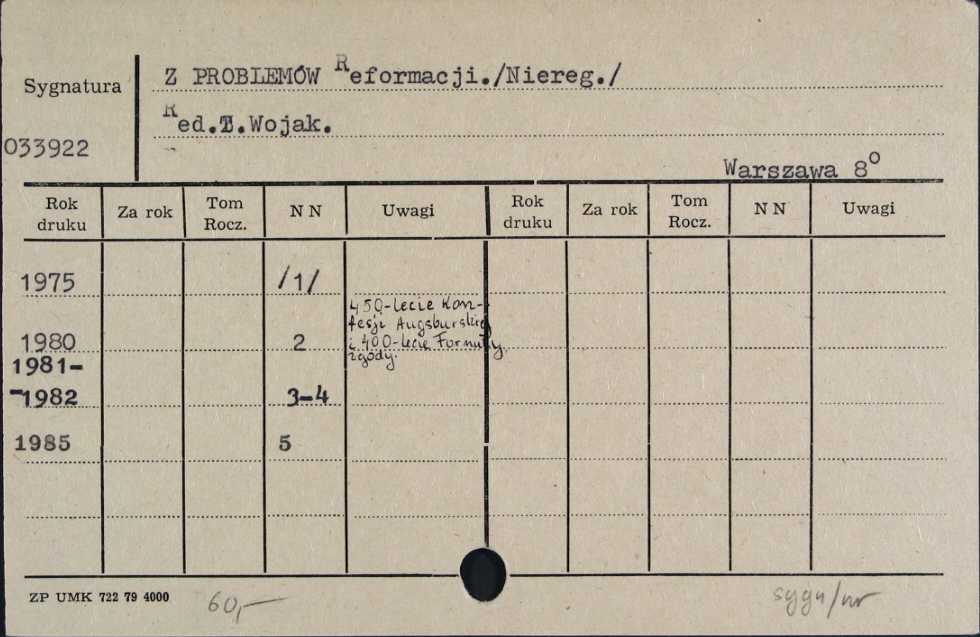 Z PROBLEMÓW Reformacji./Niereg./
Sygnatura
Red.T.Wojak.
033922
Warszawa 8º
Rok druku Za rok Tom Rocz. N N Uwagi Rok druku Za rok Tom Rocz. N N Uwagi
1975 /1/
450-lecie Kon-
fesji Augsburskiej
i 400-lecie Formuły
zgody.
1980 2
1981-
-1982 3-4
1985 5
ZP UMK 722 79 4000
60,-
sygn/nr